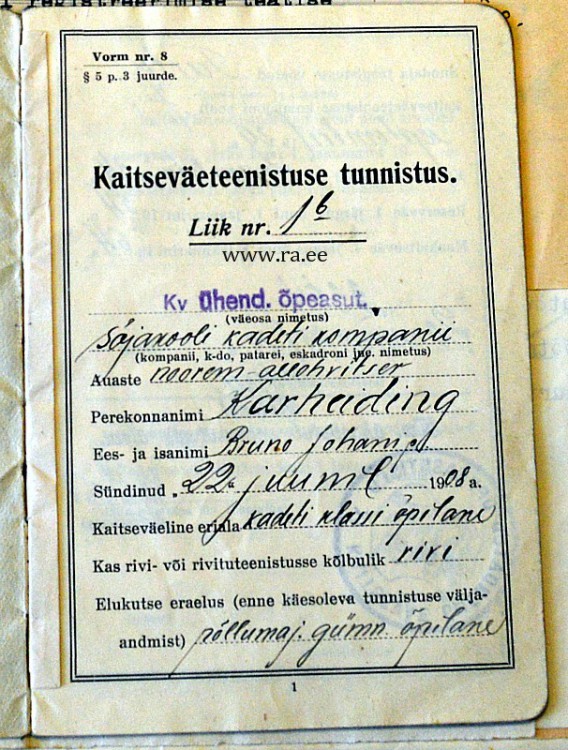 Vorm nr. 8
§ 5 p. 3 juurde.
Kaitseväeteenistuse tunnistus.
Liik nr. 1 b
www.ra.ee
Kv ühend. õpeasut.
(väeosa nimetus)
Sõjakooli kadeti kompanii
(kompanii, k-do, patarei, eskadroni jne. nimetus)
Auaste noorem-allohvitser
Perekonnanimi Karheiding
Ees- ja isanimi Bruno Johani p.
Sündinud „22“ juunil 1908 a.
Kaitseväeline eriala kadeti klassi õpilane
Kas rivi- või rivituteenistusse kõlbulik rivi
Elukutse eraelus (enne käesoleva tunnistuse välja-
andmist) põllumaj. gümn. õpilane
1